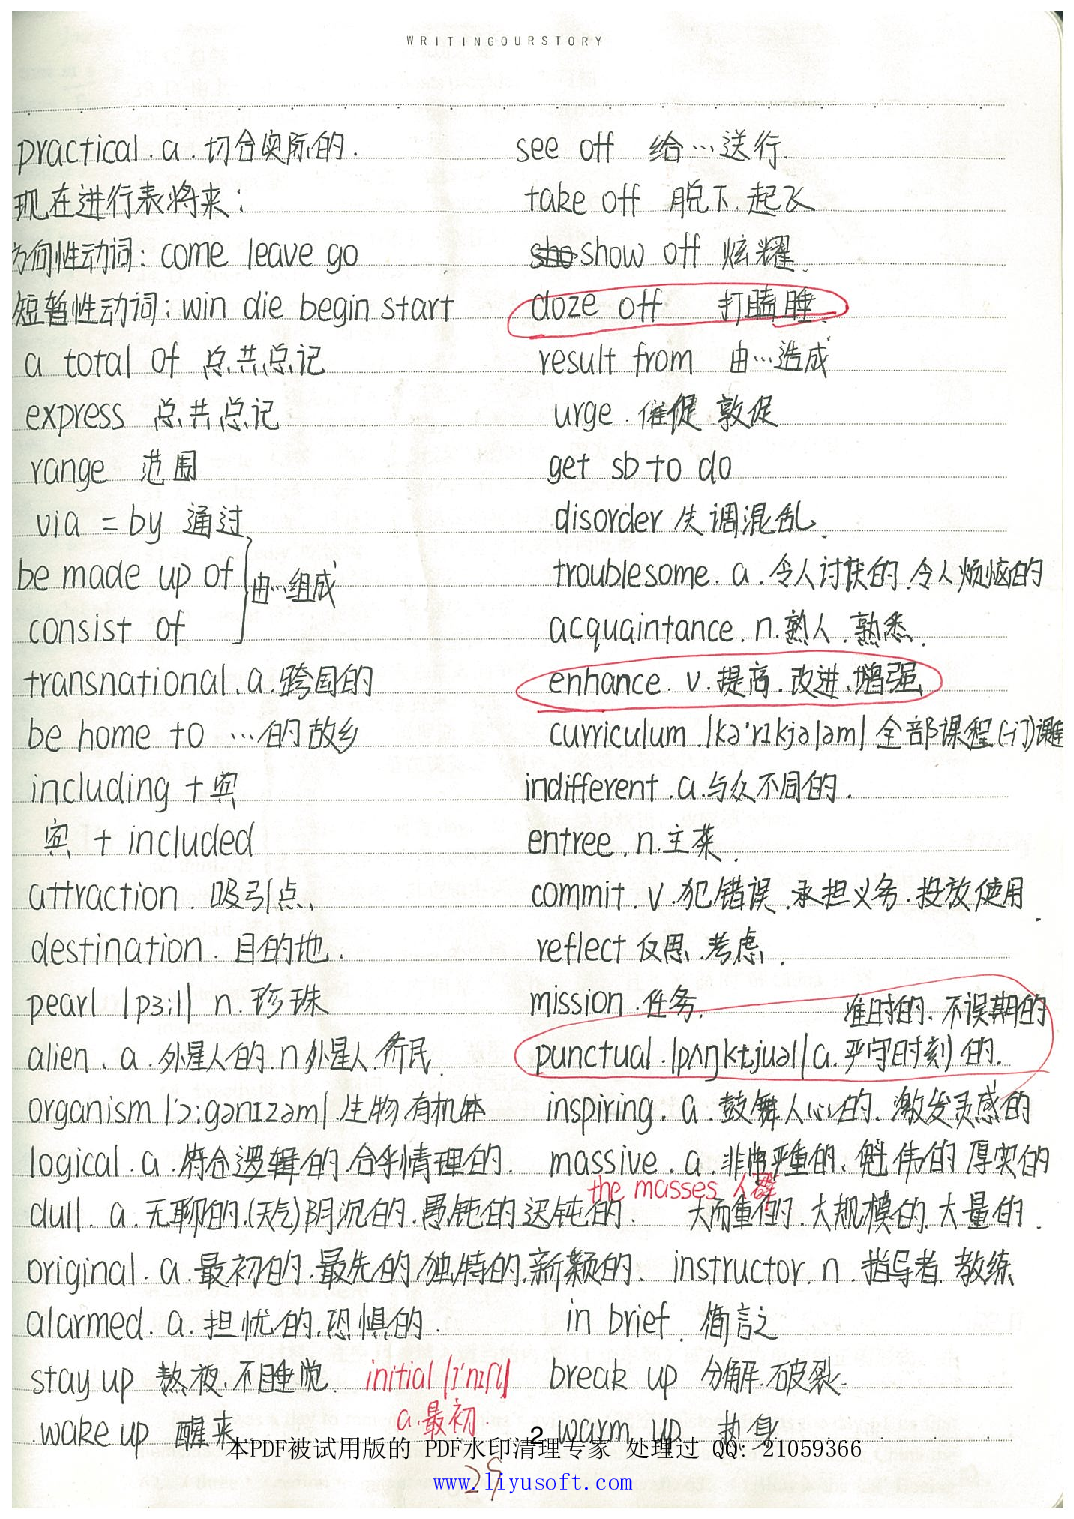 WRITINGOURSTORY
practical. a. 切合实际的.
现在进行表将来:
方向性动词: come leave go
短暂性动词: win die begin start
a total of 总共总记
express 总共总记
range 范围
via = by 通过
be made up of
consist of
由…组成
transnational. a. 跨国的
be home to …的故乡
including + 宾
宾 + included
attraction. 吸引点.
destination. 目的地.
pearl |pɜ:l| n. 珍珠
alien. a. 外星人的. n 外星人. 侨民.
organism |'ɔ:gənɪzəm| 生物. 有机体
logical. a. 符合逻辑的. 合乎情理的.
dull. a. 无聊的.(天气)阴沉的. 愚钝的 迟钝的.
original. a. 最初的. 最先的. 独特的. 新颖的.
alarmed. a. 担忧的. 恐惧的.
stay up 熬夜. 不睡觉.
initial
a. 最初.
wake up 醒来
see off 给…送行.
take off 脱下. 起飞
show off 炫耀.
doze off 打瞌睡.
result from 由…造成
urge. 催促 敦促
get sb to do
disorder 失调混乱.
troublesome. a. 令人讨厌的. 令人烦恼的
acquaintance. n. 熟人. 熟悉.
enhance. v. 提高. 改进. 增强
curriculum |kə'rɪkjələm| 全部课程 (一门)课程
indifferent. a. 与众不同的.
entree. n. 主菜.
commit. v. 犯错误. 承担义务. 投放使用.
reflect 反思. 考虑.
mission. 任务.
准时的. 不误期的
punctual. |pʌŋktʃuəl| a. 严守时刻的.
inspiring. a. 鼓舞人心的. 激发灵感的
massive. a. 非常严重的. 魁伟的 厚实的
the masses 人群
大而重的. 大规模的. 大量的.
instructor. n. 指导者. 教练
in brief. 简言之
break up 分解. 破裂.
warm up. 热身
2
本PDF被试用版的 PDF水印清理专家 处理过 QQ: 21059366
www.liyusoft.com
29